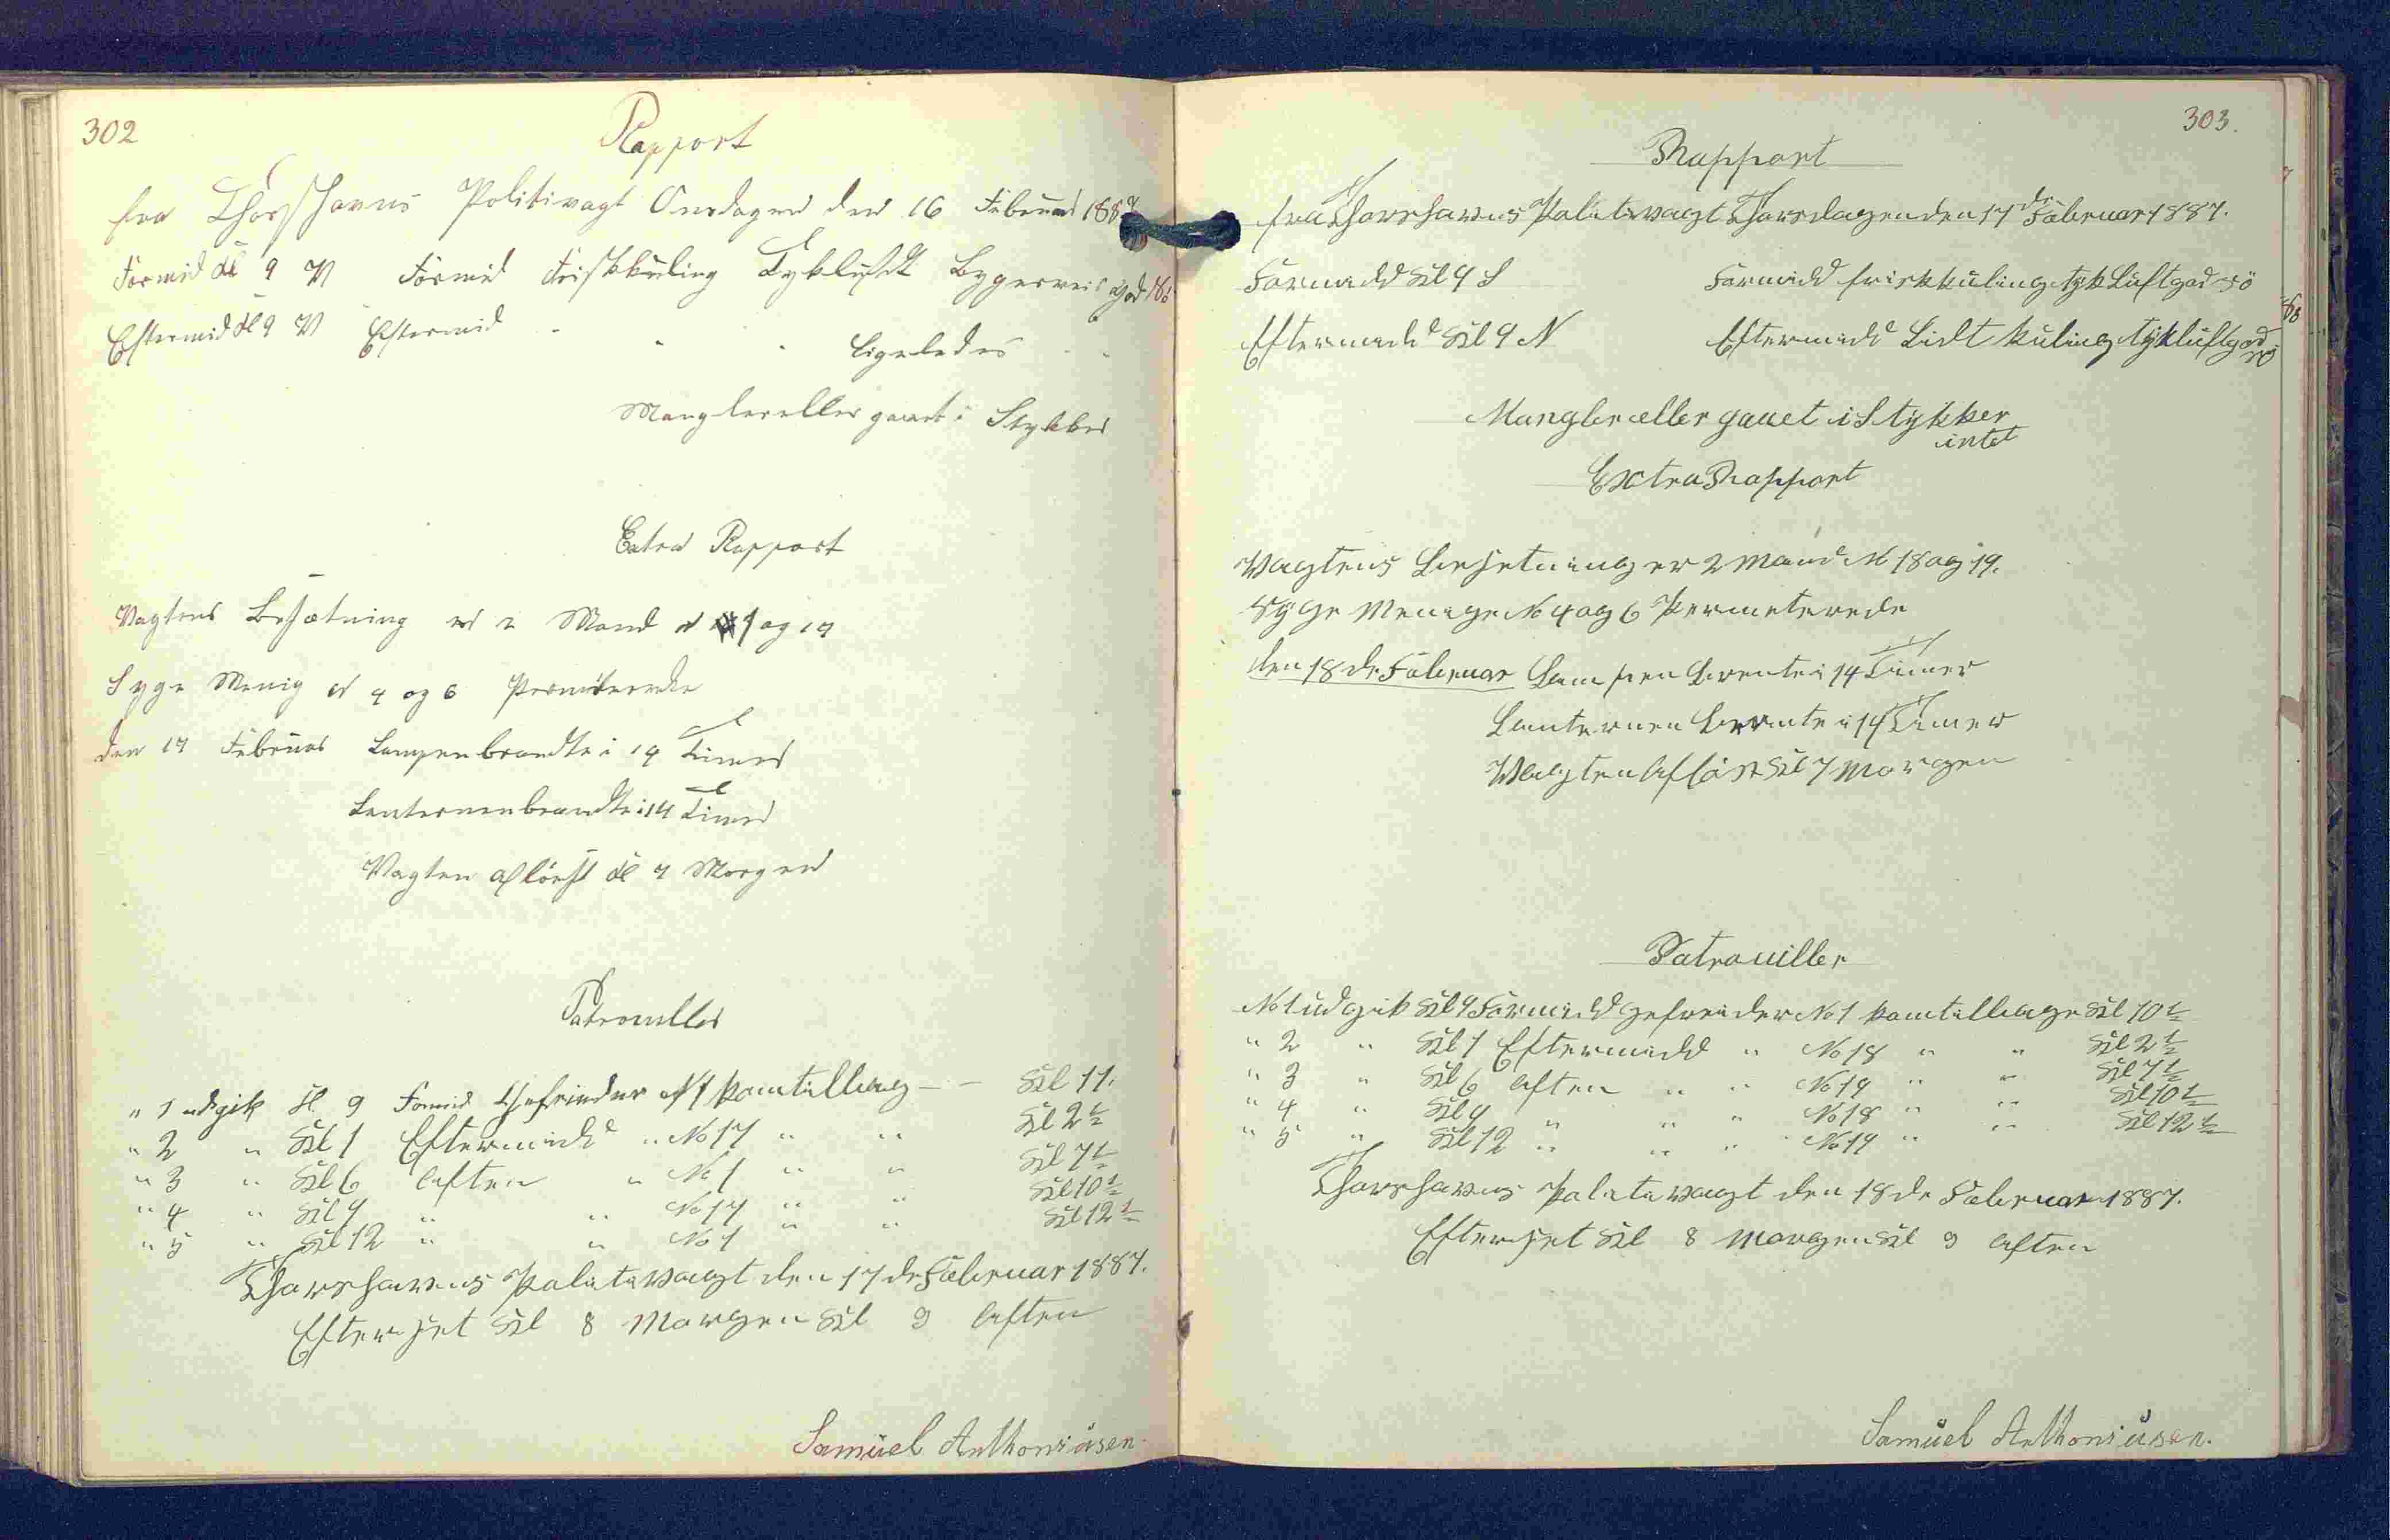 302
Rapport
fra Thorshavns Politivagt Onsdagen den 16 Februar 1887
Formid Kl 9 V Formid Friskkuling Tykluft Bygerveir god Sö
Eftermid Kl 9 V Eftermid - " " Ligeledes - -
Mangler eller gaaet i Stykker
Extra Rapport
Vagtens Besætning er 2 Mand N 1 og 17
Syge Menig N 4 og 6 Permiterede
den 17 Februar Lampen brændte i 14 Timer
Lanternen brændte i 14 Timer
Vagten aflöst Kl 7 Morgen
Patrouller
" 1 udgik Kl 9 Formid Gefreider N 1 kom tilbag - - Kl 11.
" 2 " Kl 1 Eftermidd " No 17 " " Kl 2 1/2
" 3 " Kl 6 Aften " No 1 " " Kl 7 1/2
" 4 " Kl 9 " " No 17 " " Kl 10 1/2
" 5 " Kl 12 " " No 1 " " Kl 12 1/2
Thorshavns Politivagt den 17de Februar 1887.
Eftersset Kl 8 Morgen Kl 9 Aften
Samuel Anthoniusen
303.
Rapport
fra Thorshavns Politivagt Thorsdagen den 17de Februar 1887.
Formidd Kl 9 S Formidd frisk kuling tyk Luft god sö
Eftermidd Kl 9 N Eftermidd Lidt kuling tyk luft god sö
Mangler eller gaaet i Stykker
intet
Extra Rapport
Vagtens Besetning er 2 Mand N 18 og 19.
Syge Menige No 4 og 6 Permeterede
den 18de Februar Lampen brente i 14 Timer
Lanternen brente i 14 Timer
Vagten aflöst Kl 7 Morgen
Patrouiller
No 1 udgik Kl 9 Formidd gefreider No 1 kom tilbage Kl 10 1/2
" 2 " Kl 1 Eftermidd " No 18 " " Kl 2 1/2
" 3 " Kl 6 Aften " " No 19 " " Kl 7 1/2
" 4 " Kl 9 " " " No 18 " " Kl 10 1/2
" 5 " Kl 12 " " " No 19 " " Kl 12 1/2
Thorshavns Politivagt den 18de Februar 1887.
Eftersset Kl 8 Morgen Kl 9 Aften
Samuel Anthoniusen.